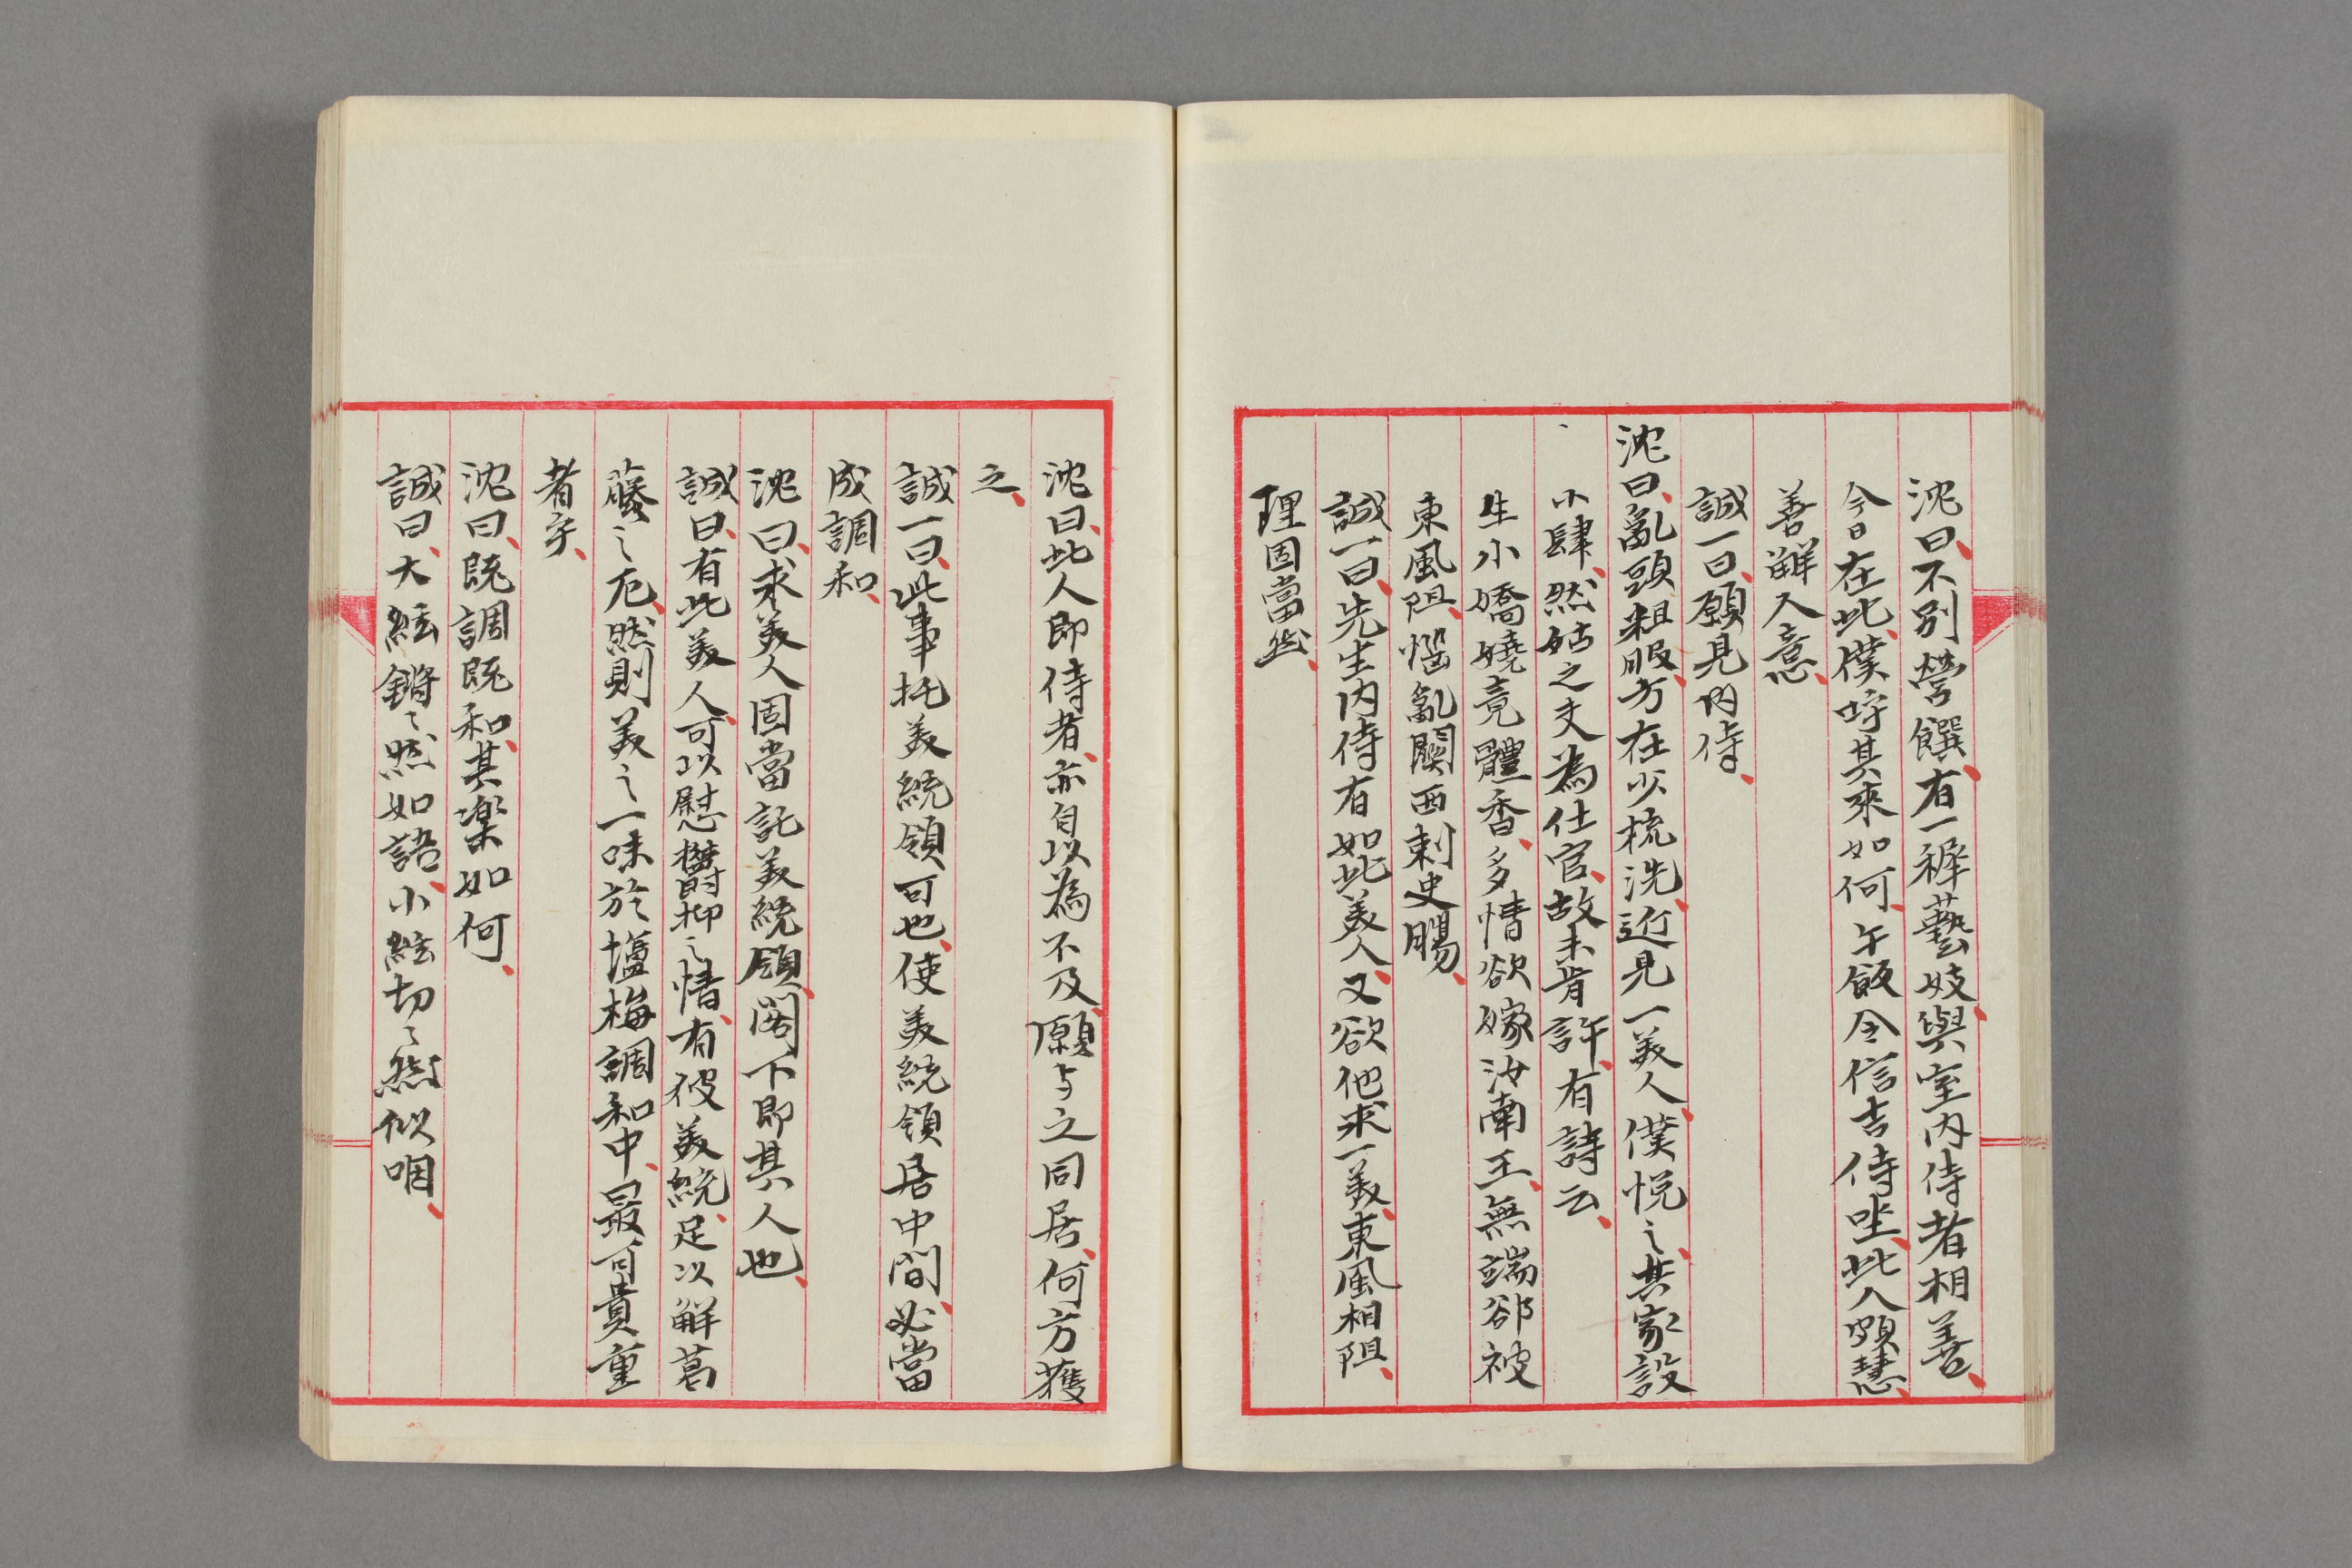 沈曰、不別營饌、有一稺藝妓、與室內侍者相善、
今日在此、僕呼其來如何、午飯令信吉侍坐、此人頗慧、
善觧人意、
誠一曰、願見內侍、
沈曰、亂頭粗服、方在少梳洗、近見一美人、僕悦之、其家設
小肆、然姑之夫為仕官、故未肯許、有詩云、
生小嬌嬈竟體香、多情欲嫁汝南王、無端郤被
東風阻、惱亂關西刺史腸、
誠一曰、先生內侍有如此美人、又欲他求一美、東風相阻、
理固當然、
沈曰、此人即侍者、亦自以為不及、願与之同居、何方獲
之、
誠一曰、此事托美統領可也、使美統領居中間、必當
成調和、
沈曰、求美人固當託美統領、閣下即其人也、
誠曰、有此美人、可以慰欝抑之情、有彼美統、足以觧葛
藤之厄、然則美之一味於塩梅調和中、最可貴重
者乎、
沈曰、既調既和、其楽如何、
誠曰、大絃鏘〻然如語、小絃切〻然似咽、